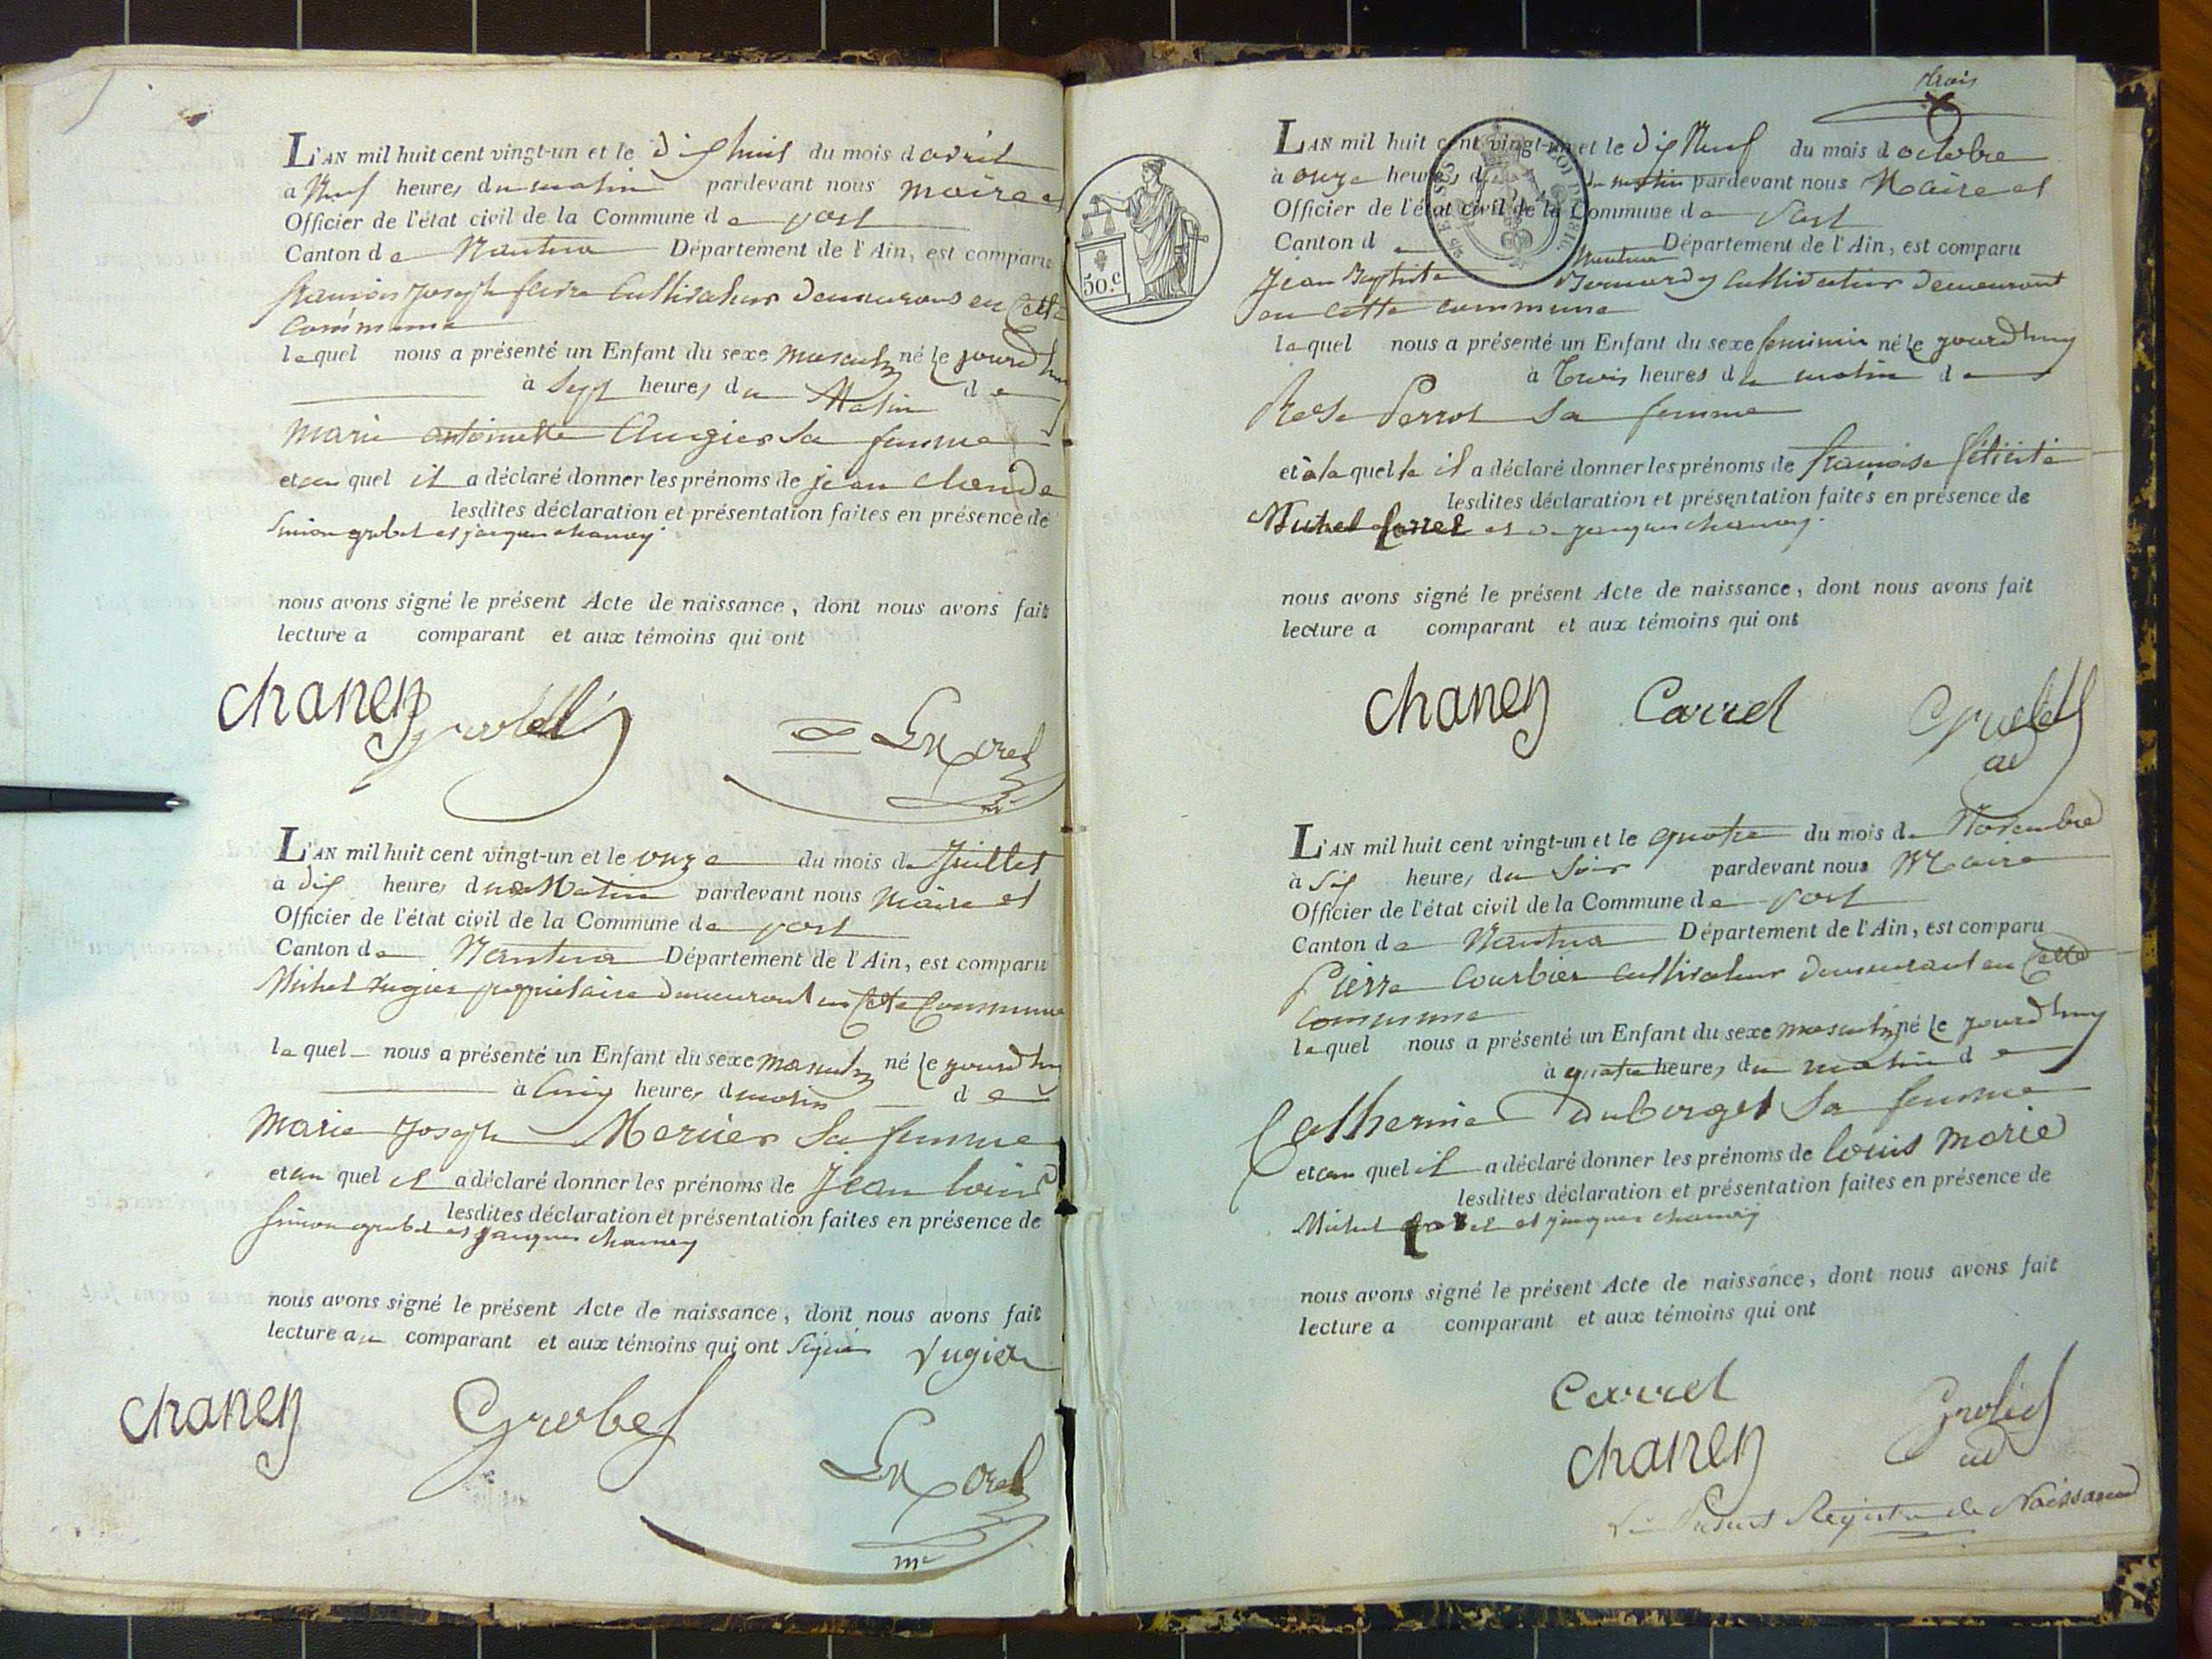 L'AN mil huit cent vingt-un et le dix huit du mois d avril
a Neuf heures du matin pardevant nous maire et
Officier de l'état civil de la Commune de port
Canton de Nantua Département de l'Ain, est comparu
françois Joseph cultivateur demeurans en Cette
Commune
lequel nous a présenté un Enfant du sexe masculin né le jourd'huy
à Sept heures du Matin de
Marie antoinette Augier sa femme
et au quel il a déclaré donner les prénoms de jean claude
lesdites déclaration et présentation faites en présence de
Simon grobet et jacques chaney
nous avons signé le présent Acte de naissance, dont nous avons fait
lecture a comparant et aux témoins qui ont
chaney grobel
L'AN mil huit cent vingt-un et le onze du mois de Juillet
a dix heures du Matin pardevant nous maire et
Officier de l'état civil de la Commune de port
Canton de Nantua Département de l'Ain, est comparu
Michel Augier propriétaire demeurant en Cette Commune
lequel nous a présenté un Enfant du sexe masculin né le jourd'huy
à Cinq heures du matin de
Marie Joseph Mercier Sa femme
et au quel il a déclaré donner les prénoms de Jean louis
lesdites déclaration et présentation faites en présence de
Simon grobet et jacques chaney
nous avons signé le présent Acte de naissance, dont nous avons fait
lecture au comparant et aux témoins qui ont Signé
chaney Grobel
trois
50.c
L'AN mil huit cent vingt-un et le dix Neuf du mois d octobre
à onze heures du matin pardevant nous Maire et
Officier de l'état civil de la Commune de Port
Canton de Nantua Département de l'Ain, est comparu
Jean Baptiste cultivateur demeurant
en cette commune
lequel nous a présenté un Enfant du sexe feminin né le jourd'huy
à Trois heures du matin de
Rose Perrot sa femme
et à laquelle il a déclaré donner les prénoms de françoise félicité
lesdites déclaration et présentation faites en présence de
Michel Carrel et de jacques chaney
nous avons signé le présent Acte de naissance, dont nous avons fait
lecture a comparant et aux témoins qui ont
chaney Carrel Grobel
ad
L'AN mil huit cent vingt-un et le quatre du mois de Novembre
à Six heures du Soir pardevant nous Maire
Officier de l'état civil de la Commune de port
Canton de Nantua Département de l'Ain, est comparu
Pierre Courbier cultivateur demeurant en Cette
Commune
lequel nous a présenté un Enfant du sexe masculin né le jourd'huy
à quatre heures du matin de
Catherine Duborget Sa femme
et au quel il a déclaré donner les prénoms de louis marie
lesdites déclaration et présentation faites en présence de
Michel Carrel et jacques chaney
nous avons signé le présent Acte de naissance, dont nous avons fait
lecture a comparant et aux témoins qui ont
Carrel
chaney
ad
Présent Registre de Naissance